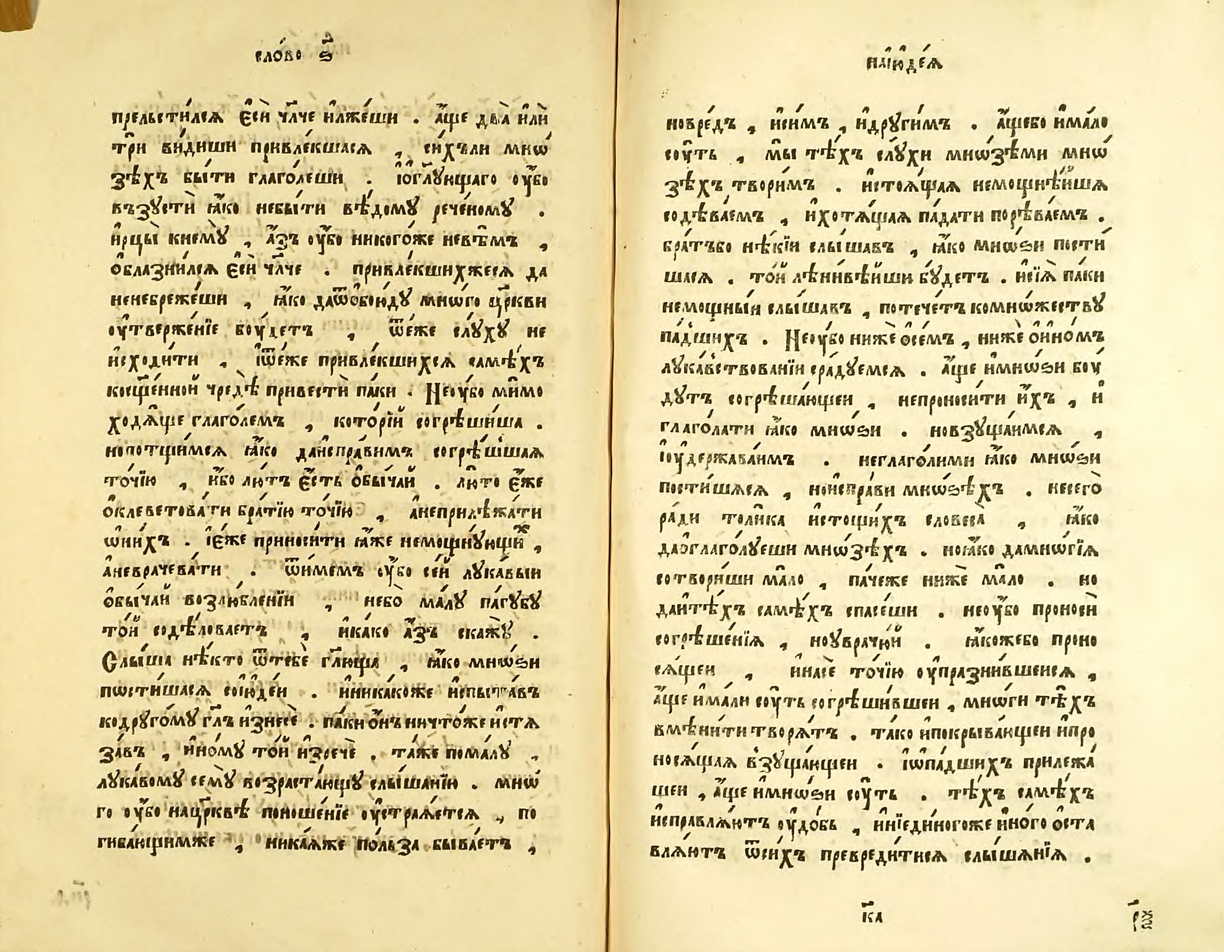 сло́во ѕ҃
прельсти́лсѧ є҆сѝ чл҃че и҆лже́ши . а҆́ще два̀ и҆лѝ
трѝ ви́диши привле́кшасѧ , си́хъли мнѡ́
зѣхъ бы́ти глаго́леши . і҆ѻ҆глꙋ́ющаго ᲂу҆́бо
въꙁꙋсти̏ ꙗ҆́ко небы́ти вѣ́домꙋ рече́номꙋ .
и҆рцы̀ кнемꙋ̀ , а҆́зъ ᲂу҆́бо никого́же невѣ́мъ ,
ѻ҆блазни́лсѧ є҆сѝ чл҃че . привле́кшихжесѧ да
ненебреже́ши , ꙗ҆́ко даѿѻ҆бои́дꙋ мно́го цр҃кви
ᲂу҆тверже́нїе бᲂу́детъ , ѿе́же слꙋ́хꙋ не
и҆сходи́ти , і҆ѿе́же привле́кшихсѧ самѣ́хъ
косщ҃е́нной чредѣ̀ привестѝ па́ки . Неᲂу҆́бо мимо
ходѧ́ще глаго́лемъ , кото́рїй согрѣши́ша .
нопотщи́мсѧ ꙗ҆́ко даи҆спра́вимъ согрѣ́шшаѧ
то́чїю , и҆́бо лю́тъ є҆́сть ѻ҆бы́чай . лю́то є҆́же
ѻ҆клевета́ти бра́тїю то́чїю , а҆неприлѣжа́ти
ѡ҆ни́хъ . і҆є҆́же приноси́ти ꙗ҆́же немощнꙋ́ющиⷯ ,
а҆неврачева́ти . ѿи́мемъ ᲂу҆́бо се́й лꙋка́вый
ѻ҆бы́чай возлю́бленїи , небо̀ ма́лꙋ па́гꙋбꙋ
то́й содѣ́ловаетъ , и҆ка́ко а҆́зъ скажꙋ̀ .
Слы́ша нѣ́кто ѿтебѐ гл҃юща , ꙗ҆́ко мно́ѕи
пѡсти́шасѧ сои҆юде́и . и҆ника́коже и҆спыта́въ
кодрꙋго́мꙋ гл҃ъ и҆знесѐ . па́ки о҆́нъ ничто́же и҆стѧ
за́въ , и҆но́мꙋ то́й и҆зречѐ . та́же пома́лꙋ ,
лꙋка́вомꙋ семꙋ̀ возраста́ющꙋ слы́шанїю . мно́
го ᲂу҆́бо нацр҃квѐ поноше́нїе ᲂу҆страѧ́етсѧ , по
гиба́ющимже , никаѧ́же по́льза быва́етъ ,
наїю҆де́ѧ
новре́дъ , и҆си́мъ , и҆дрꙋги́мъ . а҆́щебо и҆ма́ло
сᲂу́ть , мы̀ тѣ́хъ слꙋ́хи мно́зѣми мнѡ́
зѣхъ твори́мъ . и҆стоѧ́щаѧ немощнѣ́йшѧ
содѣ́ваемъ , и҆хотѧ́щаѧ па́дати порѣва́емъ .
бра́тъбо нѣ́кїй слы́шавъ , ꙗ҆́ко мно́ѕи пости́
шасѧ . то́й лѣни́вѣйши бꙋ́детъ . и҆сїѧ̀ па́ки
немощны́й слы́шавъ , потече́тъ комно́жествꙋ
па́дшихъ . Неᲂу҆́бо нижѐ ѻ҆се́мъ , нижѐ ѻ҆и҆но́мъ
лꙋка́вствованїи сра́дꙋемсѧ . а҆́ще и҆мно́ѕи бᲂу́
дꙋтъ согрѣша́ющеи , непроноси́ти и҆́хъ , и҆
глаго́лати ꙗ҆́ко мно́ѕи . новзꙋща́имсѧ ,
і҆ᲂу҆держава́имъ . неглаго́лими ꙗ҆́ко мно́ѕи
пости́шасѧ , нои҆спра́ви мно́ѕѣхъ . несего̀
ра́ди толи́ка и҆стощи́хъ словеса̀ , ꙗ҆́ко
даѻ҆глаго́лꙋеши мно́зѣхъ . ноꙗ҆́ко дамнѡ́гїѧ
сотвори́ши ма́ло , па́чеже нижѐ ма́ло . но
даитѣ́хъ самѣ́хъ спасе́ши . неᲂу҆́бо проносѝ
согрѣше́нїѧ , ноᲂу҆врачꙋ́й . ꙗ҆́кожебо проно
сѧ́щеи , и҆насѐ то́чїю ᲂу҆праздни́вшеисѧ ,
а҆́ще и҆ма́ли сᲂу́ть согрѣши́вшеи , мно́ги тѣ́хъ
вмѣни́ти творѧ́тъ . та́ко и҆покрыва́ющеи и҆про
носѧ́щаѧ взꙋща́ющеи . і҆ѡ҆па́дшихъ прилежа́
щеи , а҆́ще и҆мно́ѕи сᲂу́ть . тѣ́хъ самѣ́хъ
и҆справлѧ́ютъ ᲂу҆до́бь , и҆нїеди́ногоже и҆но́го ѻ҆ста
влѧ́ютъ ѿси́хъ превреди́тисѧ слы́шанїѧ .
к҃а